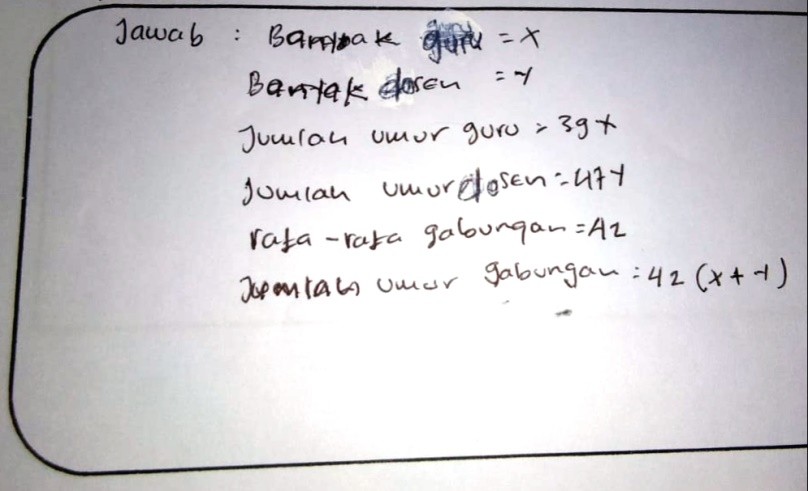 Jawab : Banyak guru = x
Banyak dosen = y
Jumlah umur guru = 39x
Jumlah umur dosen = 47y
rata-rata gabungan = 42
Jumlah umur gabungan = 42 (x + y)